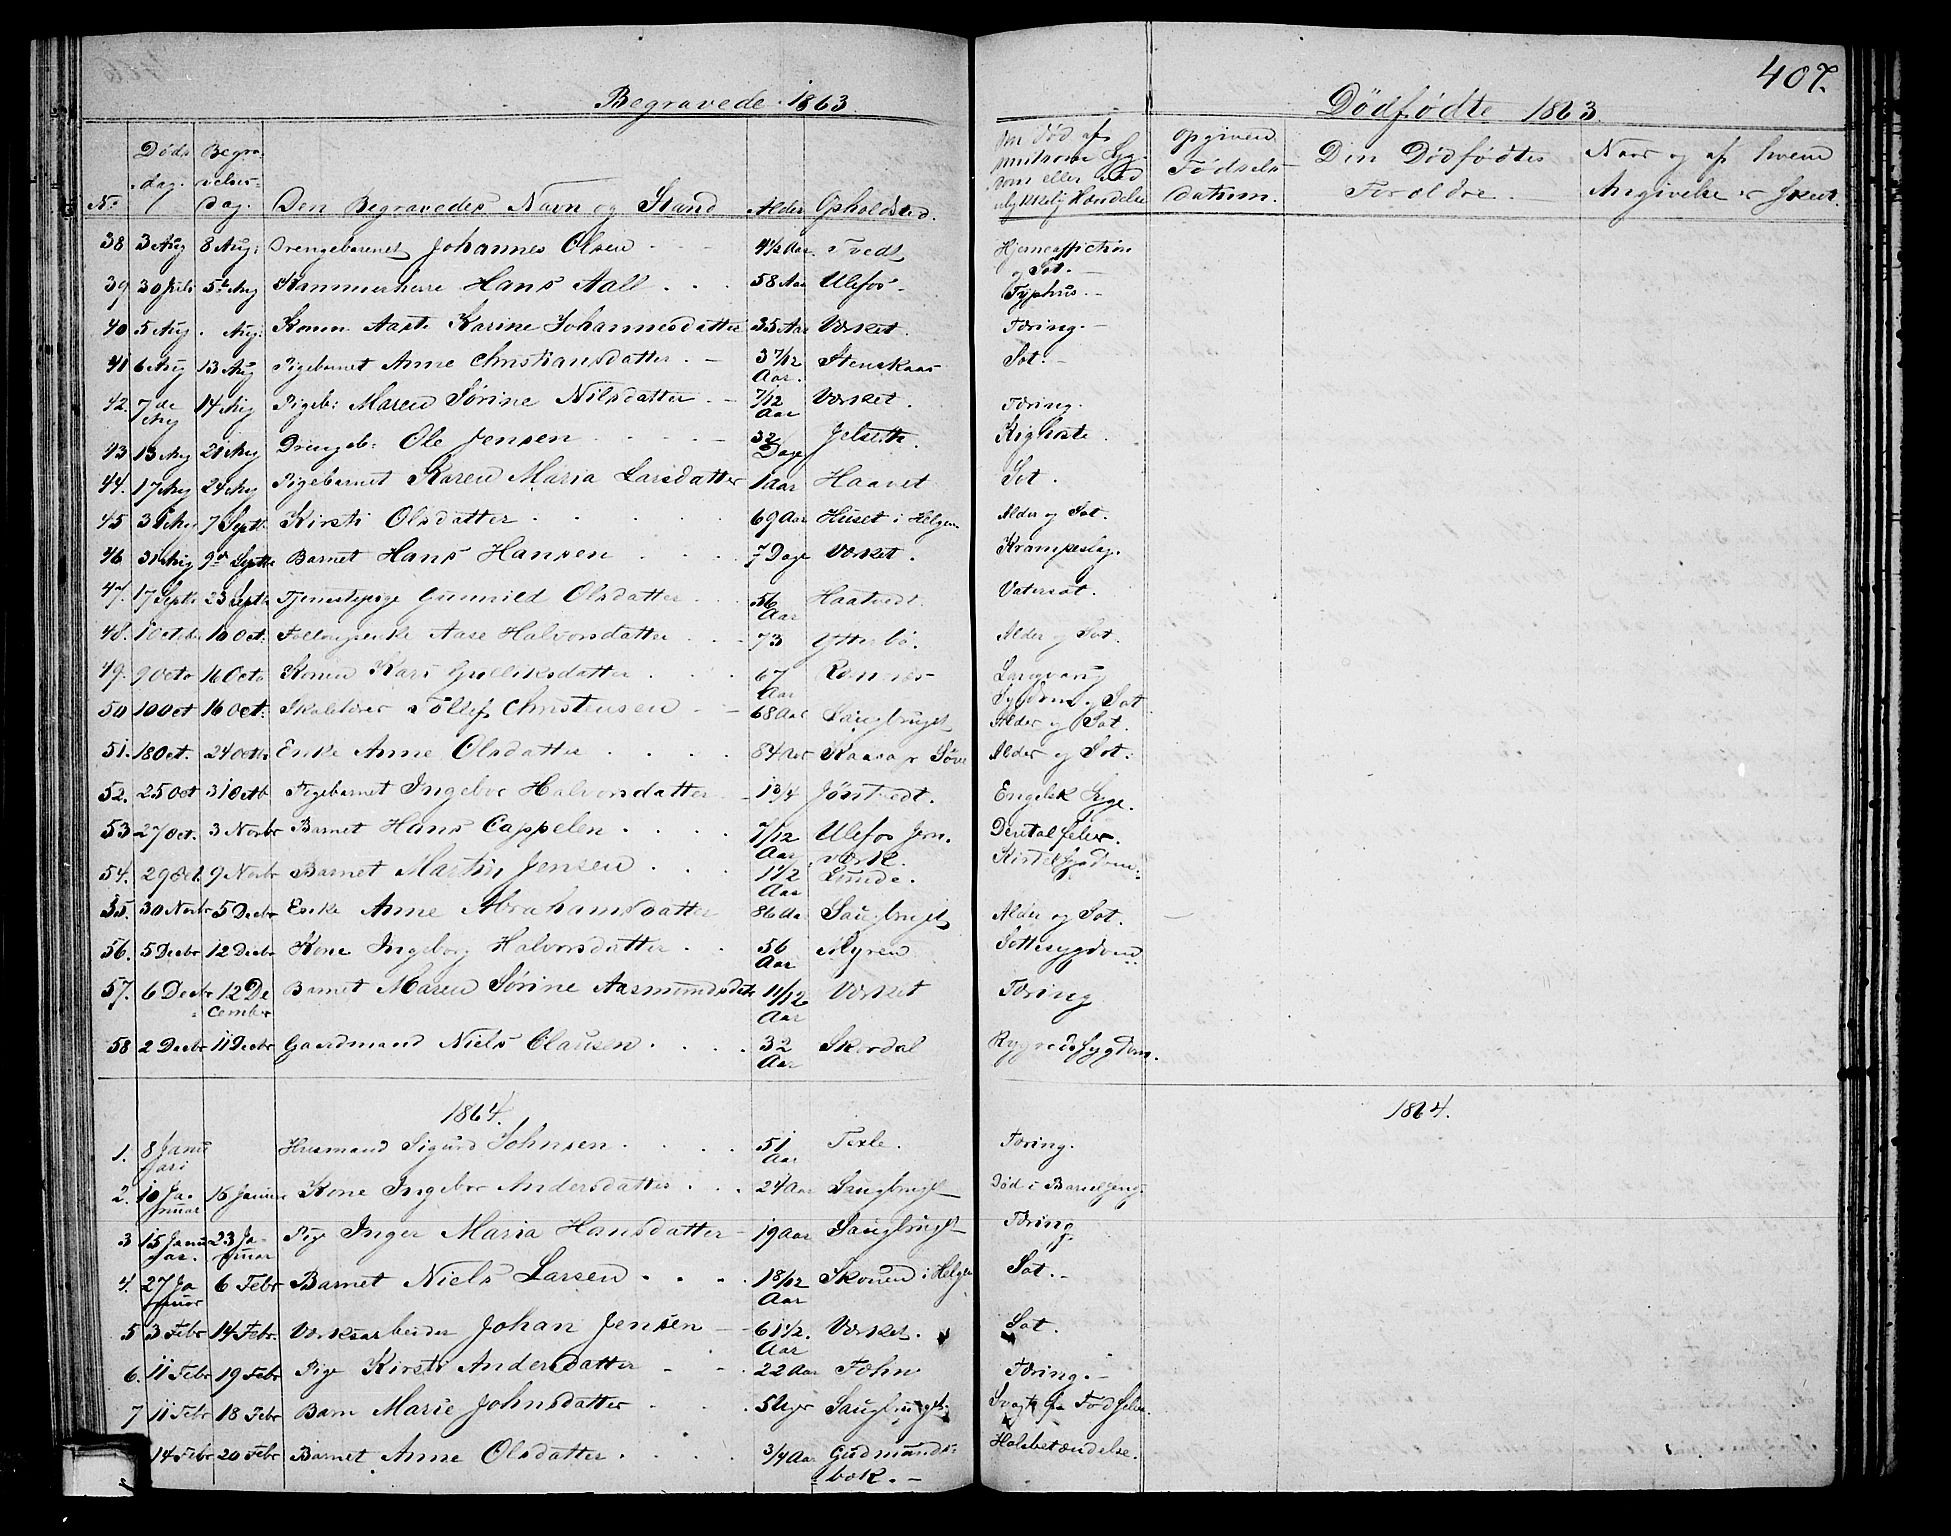 Begravede 1863.
Dødfødte 1863.
407.
No Døds dag. Begravelses Dag. Den Begravedes Navn og Stand Alder Opholdsted. Om død af smitsom Syg- dom eller ved ulykkelig Hændelse Opgiven Fødsels- datum. Den Dødfødtes Forældre. Naar og af hvem Angivelse er skeet.
38 3 Aug 8 Aug: Drengebarnet Johannes Olsen 4 1/2 Aar Tvedt Hjerneaffiction og Sot.
39 30 Juli 5te Aug Kammerherre Hans Aall 58 Aar Ulefos Typhus.
40 5 Aug . Aug: Konen Aaste Karine Johannesdatter 35 Aar Værket. Tæring.
41 6 Aug 13 Aug Pigebarnet Anne Christiansdatter 3 7/12 Aar. Stenskaas Sot.
42. 7de Aug 14 Aug Pigeb: Maren Sørine Nilsdatter 7/12 Aar Værket. Tæring.
43 13 Aug 21 Aug Drengeb: Ole Jensen 32 Dage Jelseth. Kighoste.
44. 17 Aug 24 Aug Pigebarnet Karen Maria Larsdatter 1 Aar Haavet Sot.
45 31 Aug 7 Septr Kirsti Olsdatter 69 Aar Huset i Helgen Alder og Sot.
46 31 Aug 9de Septr Barnet Hans Hansen 7 Dage Værket. Krampeslag.
47. 17 Septr 23 Septr Tjenestepige Gunnild Olsdatter 56 Aar Haatvedt. Vatersot.
48. 1 Octbr 10 Oct. Follougsenke Aase Halvorsdatter 73 Ytterbø. Alder og Sot.
49. 9 Octo 16 Octo Konen Kari Gulliksdatter 67 Aar Romnæs Langvarig Sygdom og Sot
50 10 Oct 16 Oct. Skolelærer Tollef Christensen 68 Aar Saugbruget Alder og Sot.
51. 18 Oct. 24 Octbr Enke Anne Olsdatter 84 Aar Kaasa pr Søve Alder og Sot.
52. 25 Oct 31 Octb Pigebarnet Ingebor Halvorsdatter 1 3/4 Jøntvedt. Engelsk Syge.
53 27 Oct. 3 Novbr Barnet Hans Cappelen 7/12 Aar Ulefos Jern- værk. Dentalfeber.
54. 29 Oct. 9 Novbr Barnet Martin Jensen 1 1/2 Aar Lunde. Kirtelsygdom.
55. 30 Novbr 5 Decbr Enke Anne Abrahamsdatter 86 Aar Saugbruget Alder og Sot.
56. 5 Decbr 12 Decbr Kone Ingeborg Halvorsdatter 56 Aar Myren Sottesygdom
57. 6 Decbr 12 De cember Barnet Maren Sørine Aasmundsdatr 11/12 Aar Værket Tæring
58 2 Decbr 11 Decbr Gaardmand Niels Clausen 32 Aar Skordal Rygradssygdom.
1864.
1864.
1. 8 Janu ari Husmand Sigurd Johnsen 51 Aar Texle. Tæring.
2. 10 Ja- nuar 16 Januar Kone Ingebor Andersdatter 24 Aar Saugbruget Død i Barselseng.
3 15 Janu ar. 23 Ja- nuar Pige Inger Maria Hansdatter 19 Aar Saugbruget Tæring.
4. 27 Ja nuar 6 Febr Barnet Niels Larsen 1 8/12 Aar Skouen i Helgen Sot.
5 3 Febr 14 Febr. Værksarbeider Johan Jensen 61 1/2. Aar Værket. Sot.
6. 11 Febr 19 Febr Pige Kirsti Andersdatter 22 Aar Fæhn Tæring.
7 11 Febr 18 Febr Barn Marie Johnsdatter 5 Uger Saugbruget. Svag fra Fødselen.
14 Febr 20 Febr Barnet Anne Olsdatter 3/4 Aar Gudmunds- bæk. Halsbetændelse.